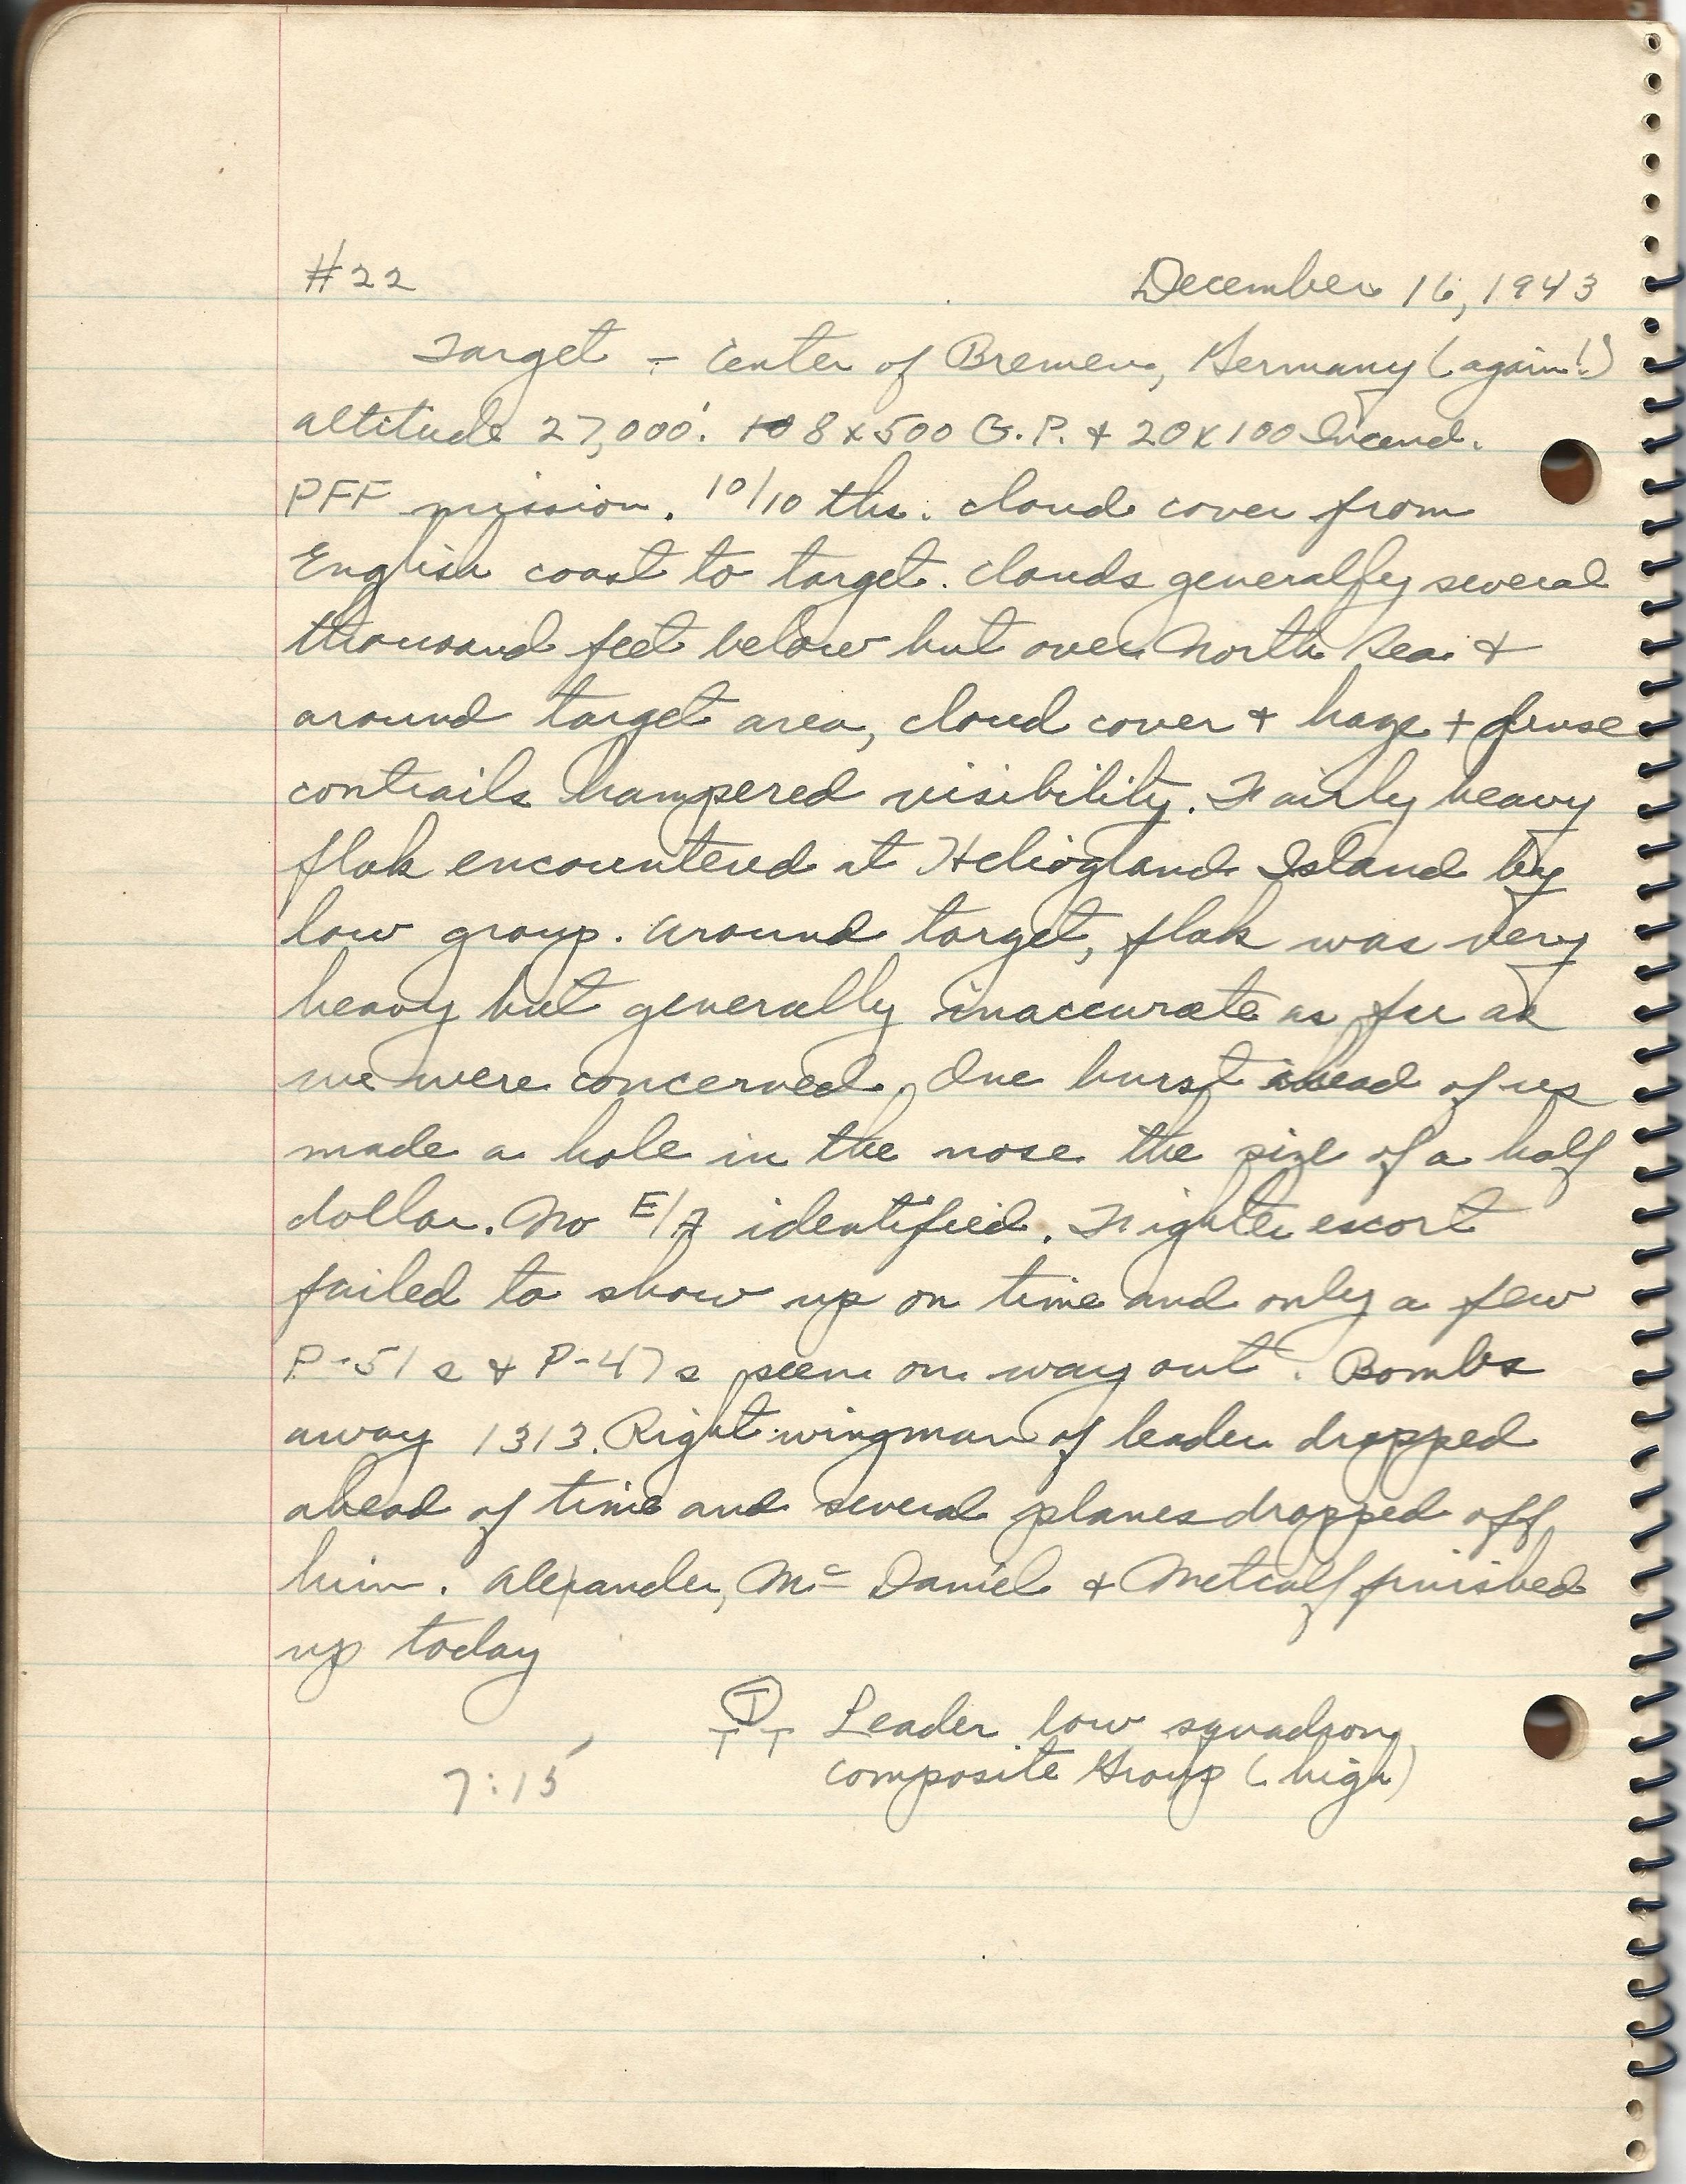 #22 December 16, 1943
Target - Center of Bremen, Germany (again!)
altitude 27,000'. 8x500 G.P. + 20x100 Incend.
PFF mission. 10/10 ths. cloud cover from
English coast to target. Clouds generally several
thousand feet below but over North Sea +
around target area, cloud cover + haze + dense
contrails hampered visibility. Fairly heavy
flak encountered at Heliogland Island by
low group. Around target, flak was very
heavy but generally inaccurate as far as
we were concerned. One burst ahead of us
made a hole in the nose the size of a half
dollar. No E/A identified. Fighter escort
failed to show up on time and only a few
P-51s + P-47s seen on way out. Bombs
away 1313. Right wingman of leader dropped
ahead of time and several planes dropped off
him. Alexander, Mc Daniel + Metcalf finished
up today
T Leader low squadron,
T T composite Group (high)
7:15